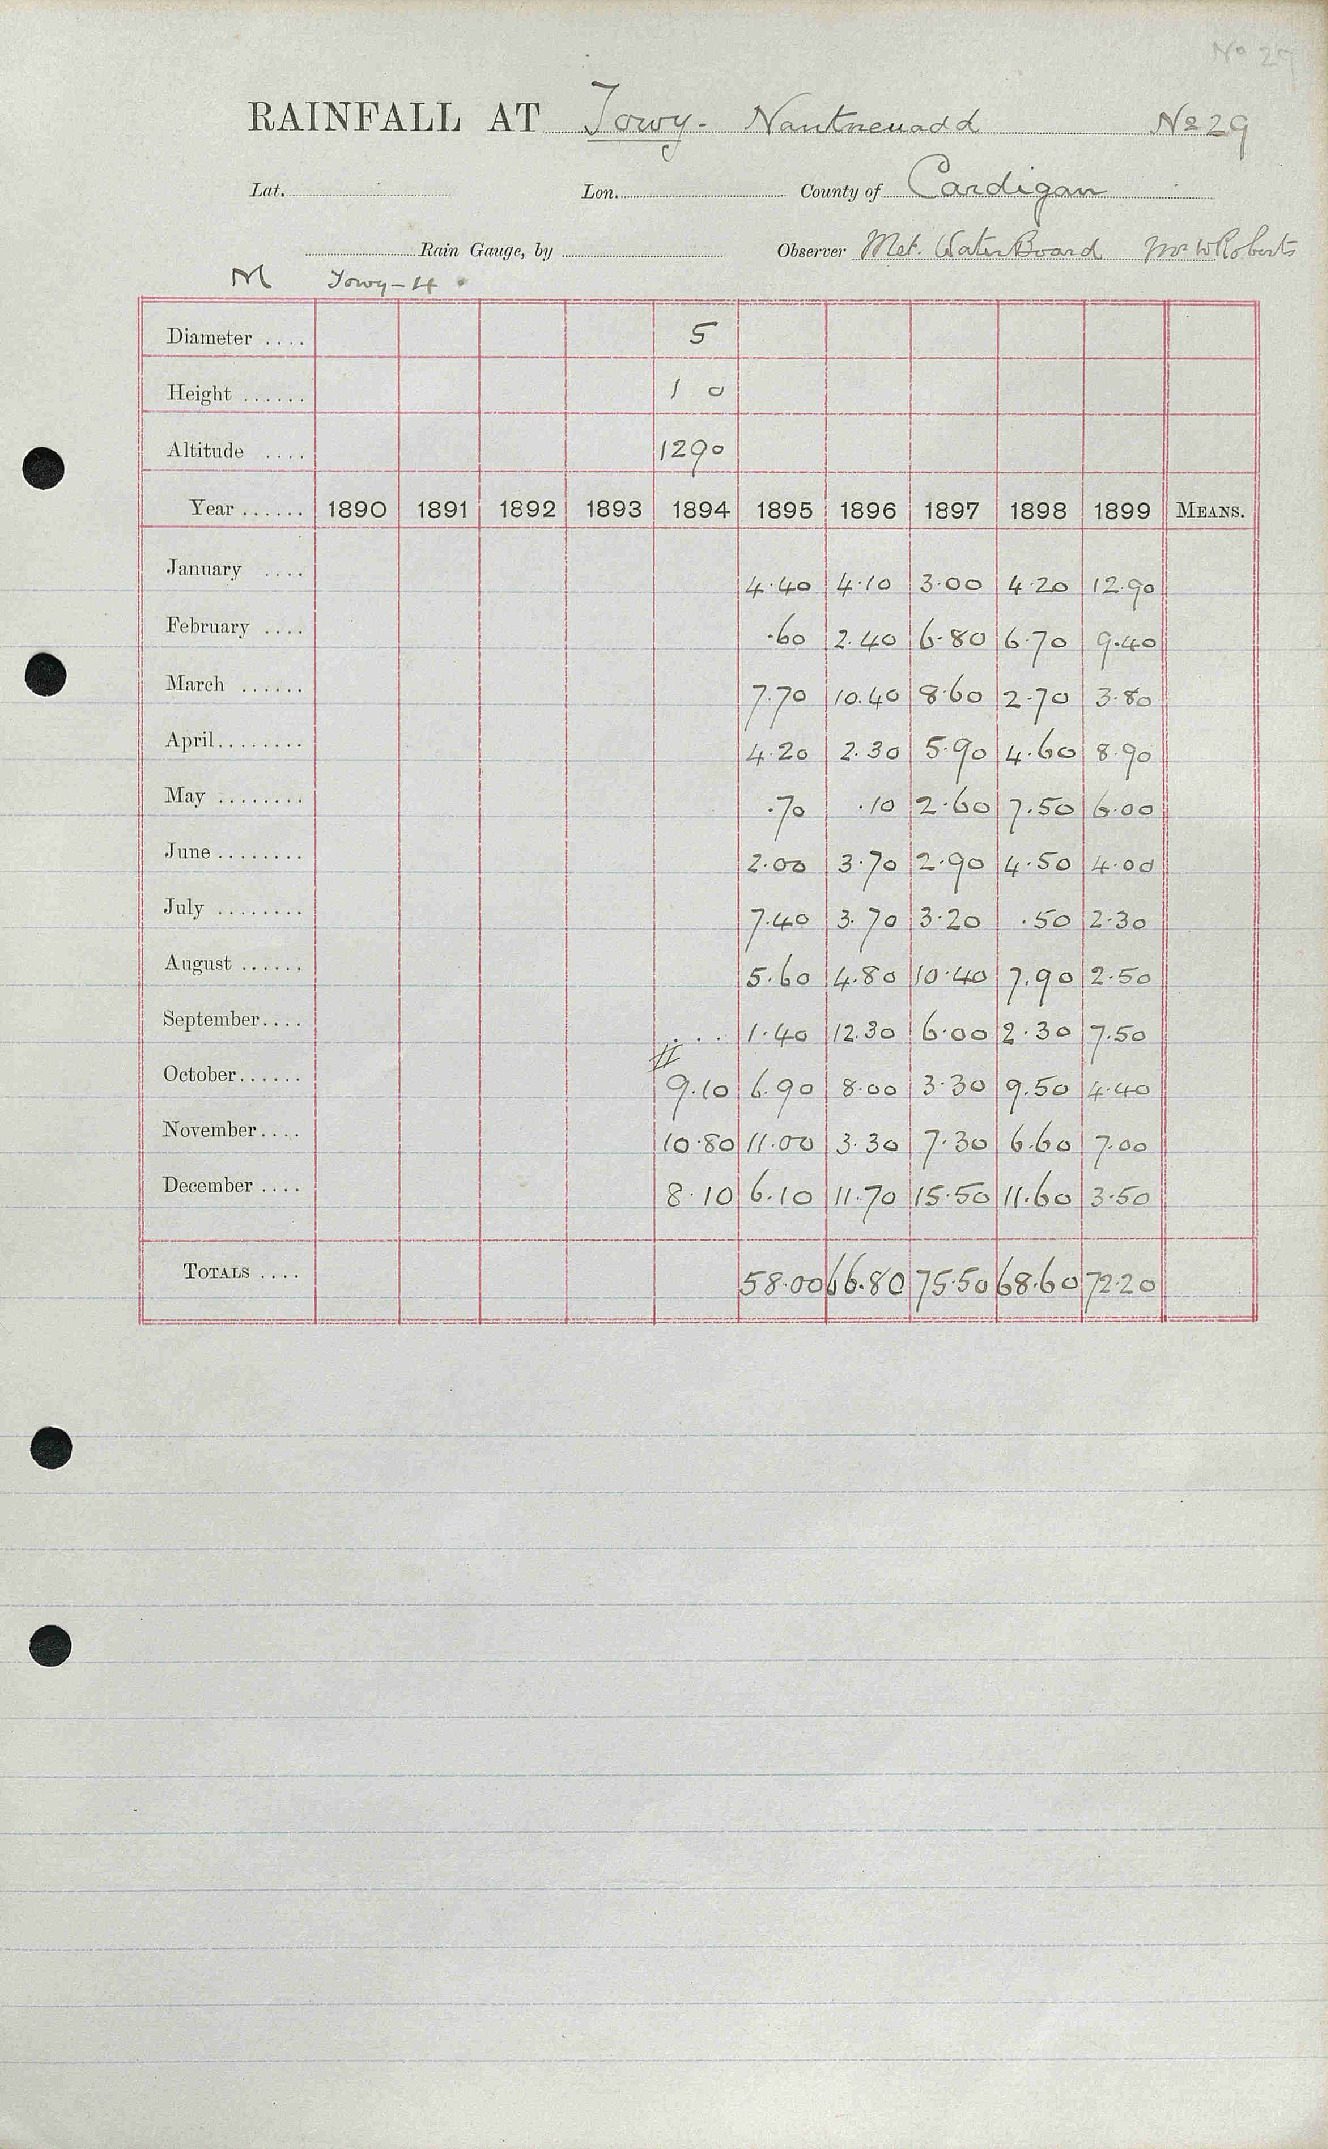 No 27
RAINFALL AT Towy- Nantneuadd No 29
Lat. Lon. County of Cardigan
Rain Gauge, by Observer Met. Water Board Mr W Roberts
M Towy-14
Diameter .... 5
Height ...... 1 0
Altitude .... 1290
Year ...... 1890 1891 1892 1893 1894 1895 1896 1897 1898 1899 MEANS.
January .... 4.40 4.10 3.00 4.20 12.90
February .... .60 2.40 6.80 6.70 9.40
March ...... 7.70 10.40 8.60 2.70 3.80
April........ 4.20 2.30 5.90 4.60 8.90
May ........ .70 .10 2.60 7.50 6.00
June........ 2.00 3.70 2.90 4.50 4.00
July ........ 7.40 3.70 3.20 .50 2.30
August ...... 5.60 4.80 10.40 7.90 2.50
September.... ... 1.40 12.30 6.00 2.30 7.50
October...... 9.10 6.90 8.00 3.30 9.50 4.40
November.... 10.80 11.00 3.30 7.30 6.60 7.00
December .... 8.10 6.10 11.70 15.50 11.60 3.50
TOTALS .... 58.00 66.80 75.50 68.60 72.20